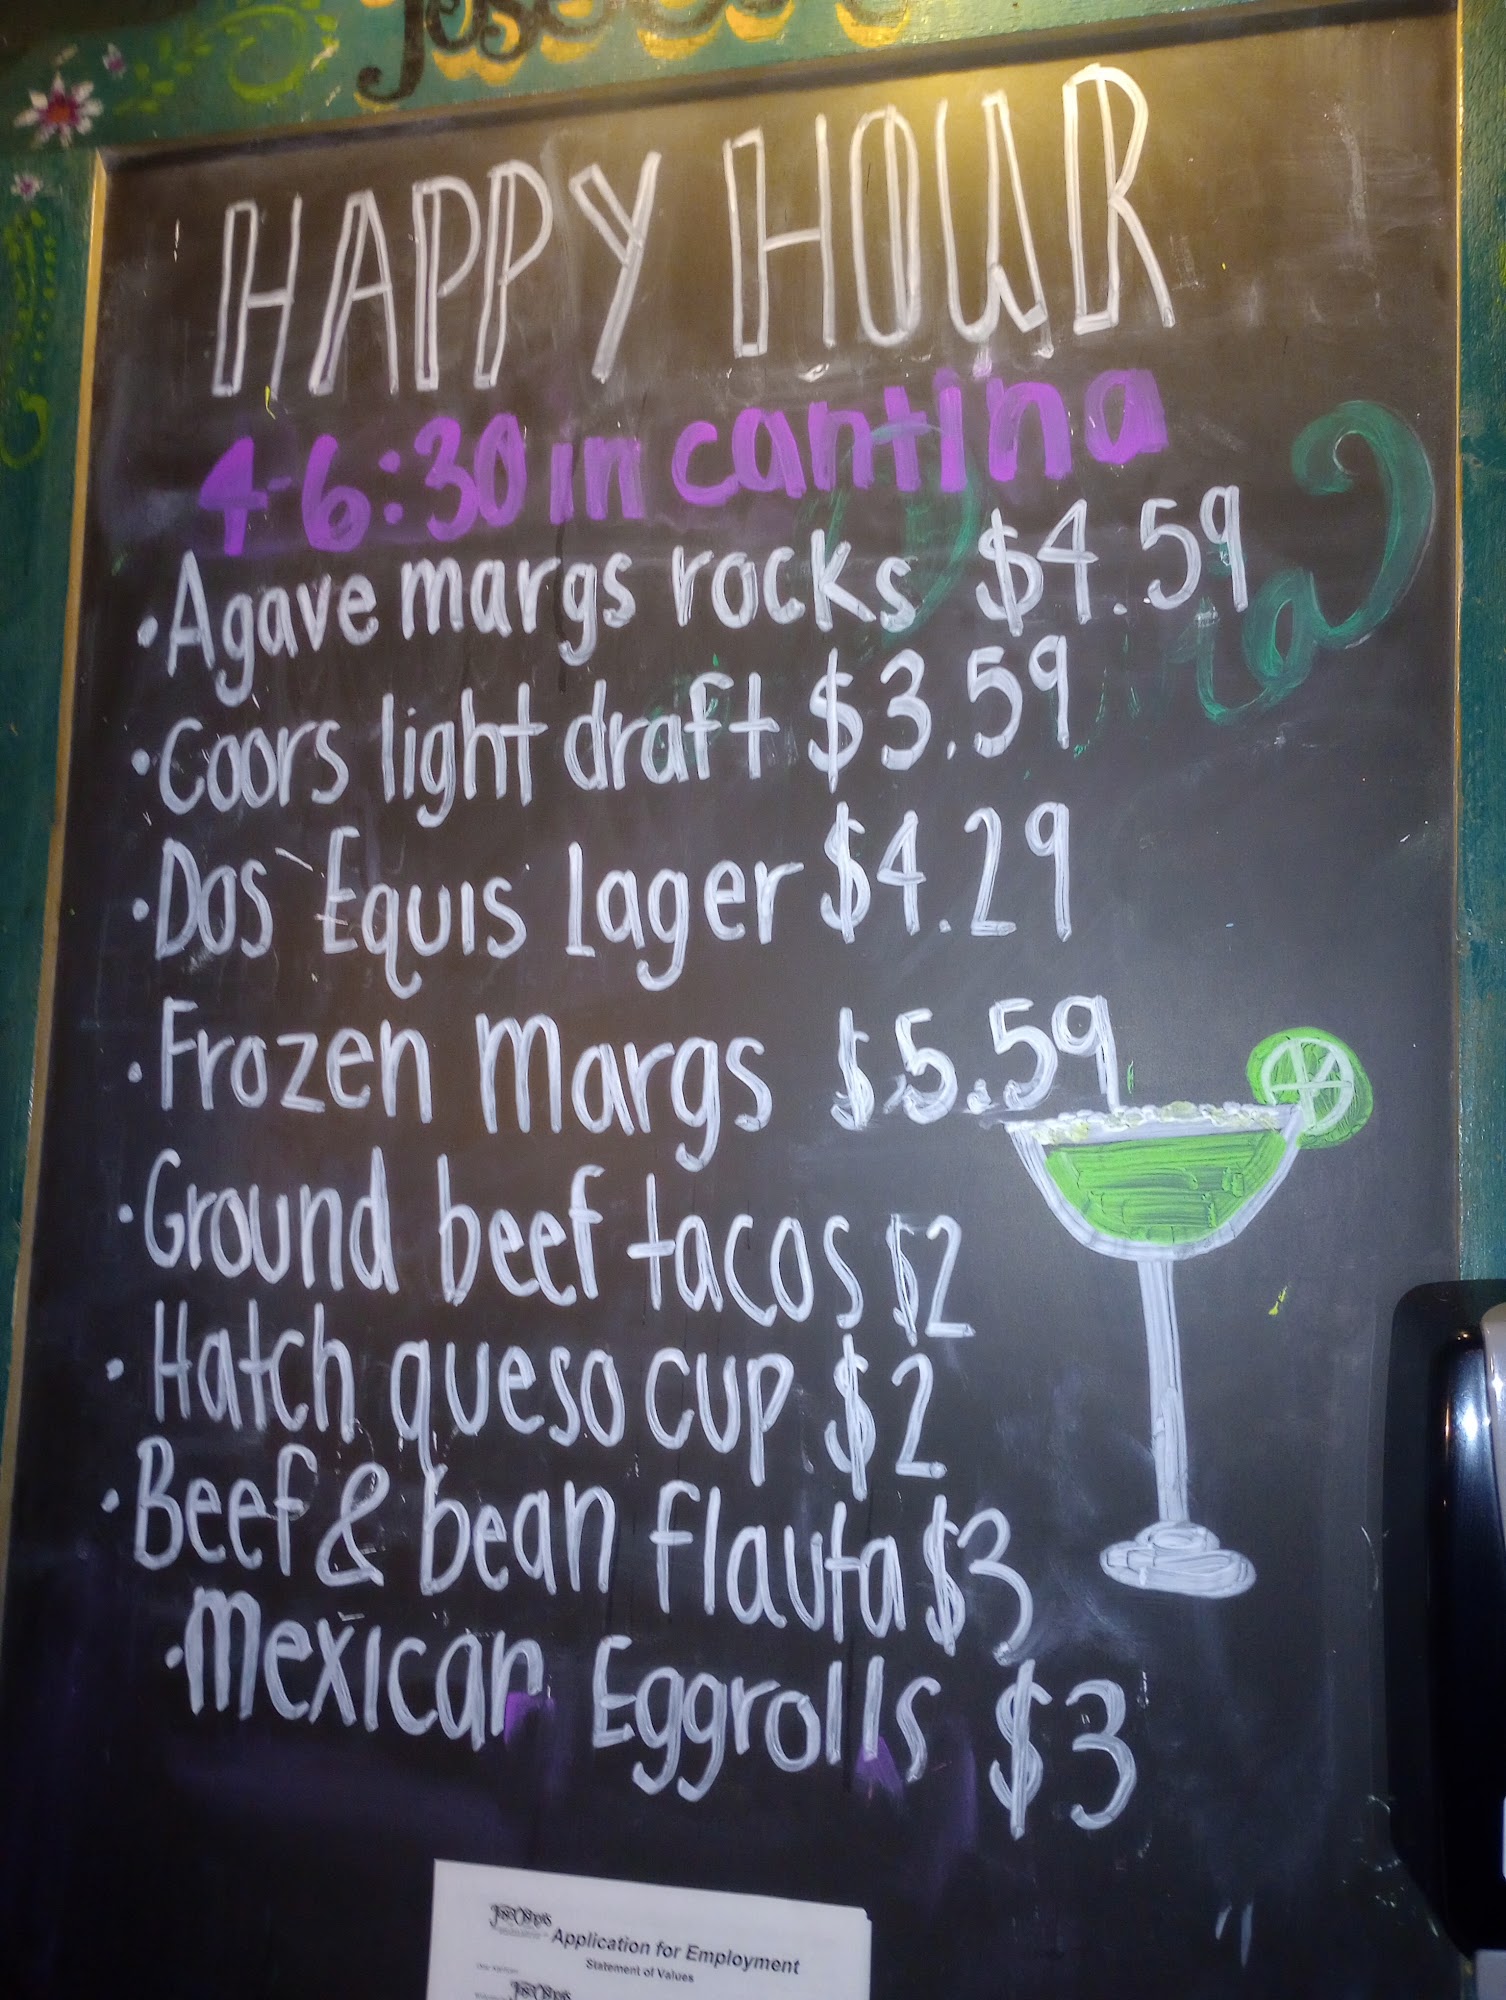 HAPPY HOUR
4-6:30 in cantina
• Agave margs rocks $4.59
• Coors light draft $3.59
• Dos Equis lager $4.29
• Frozen Margs $5.59
• Ground beef tacos $2
• Hatch queso cup $2
• Beef & bean flauta $3
• Mexican Eggrolls $3
Application for Employment
Statement of Values